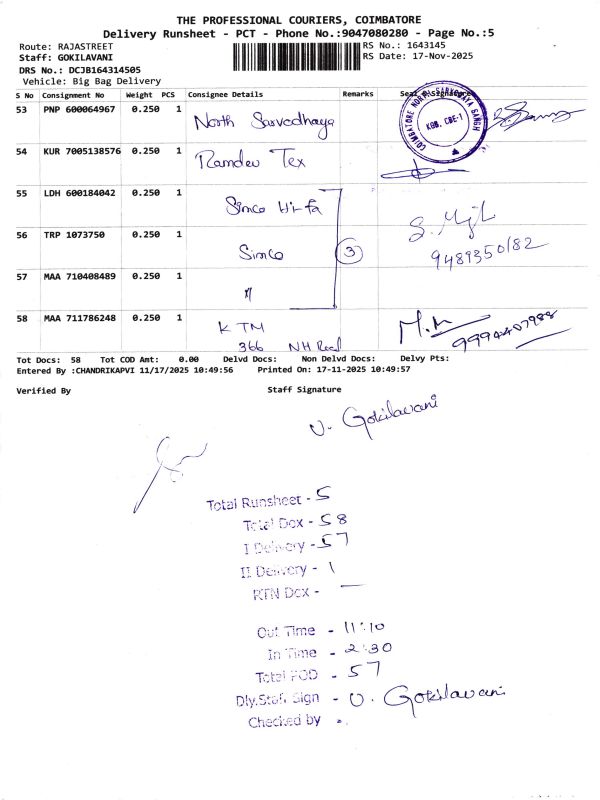 THE PROFESSIONAL COURIERS, COIMBATORE
Delivery Runsheet - PCT - Phone No.:9047080280 - Page No.:5
Route: RAJASTREET
RS No.: 1643145
Staff: GOKILAVANI
RS Date: 17-Nov-2025
DRS No.: DCJB164314505
Vehicle: Big Bag Delivery
S No Consignment No Weight PCS Consignee Details Remarks Seal & Signature
53 PNP 600064967 0.250 1 North Sarvodhaya
COIMBATORE NORTH SARVODAYA SANGH
KGB. CBE-1
54 KUR 7005138576 0.250 1 Ramdev Tex
55 LDH 600184042 0.250 1 Simco Hi-Fa
56 TRP 1073750 0.250 1 Simco 3
9489350182
57 MAA 710408489 0.250 1 "
58 MAA 711786248 0.250 1 KTM
366 NH Road
M.M 9994407988
Tot Docs: 58 Tot COD Amt: 0.00 Delvd Docs: Non Delvd Docs: Delvy Pts:
Entered By :CHANDRIKAPVI 11/17/2025 10:49:56 Printed On: 17-11-2025 10:49:57
Verified By Staff Signature
V. Gokilavani
Total Runsheet - 5
Total Dox - 58
I Delivery - 57
II Delivery - 1
RTN Dox - —
Out Time - 11:10
In Time - 2:30
Total POD - 57
Dly.Staff Sign - V. Gokilavani
Checked by -